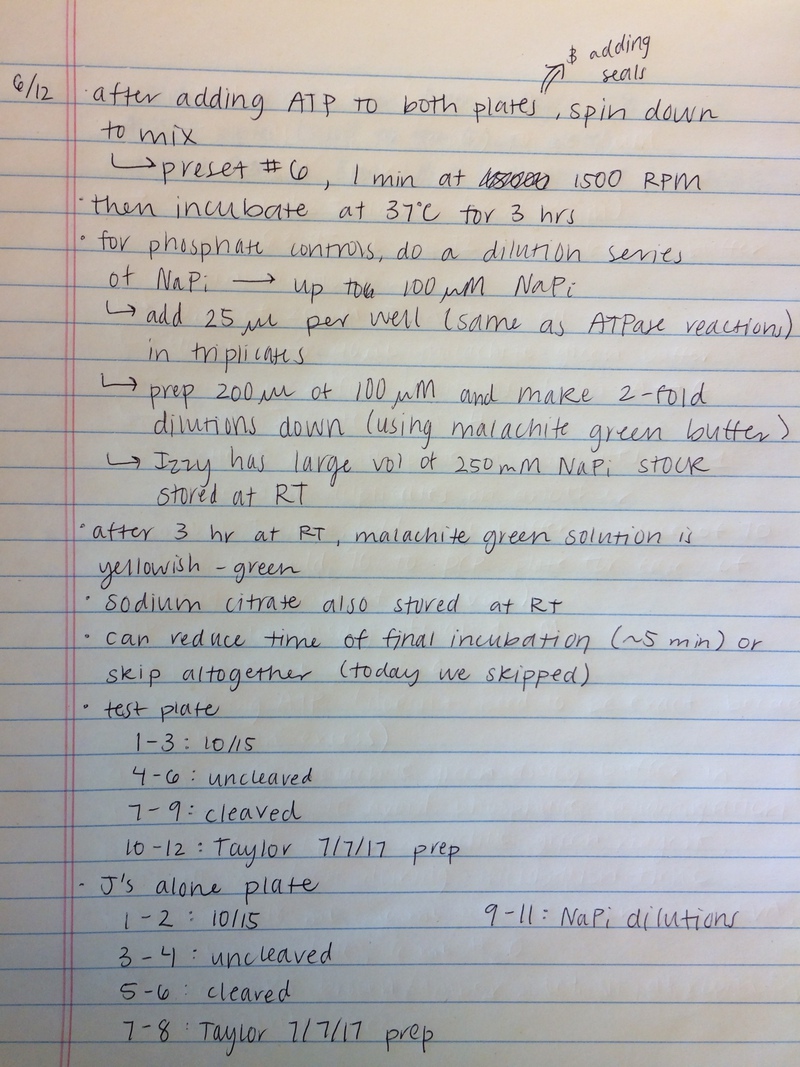 & adding
seals
6/12 · after adding ATP to both plates, spin down
to mix
↳ preset #6, 1 min at 1500 RPM
· then incubate at 37°C for 3 hrs
· for phosphate controls, do a dilution series
of NaPi → up to 100 μM NaPi
↳ add 25 μl per well (same as ATPase reactions)
in triplicates
↳ prep 200 μl of 100 μM and make 2-fold
dilutions down (using malachite green buffer)
↳ Izzy has large vol of 250 mM NaPi stock
stored at RT
· after 3 hr at RT, malachite green solution is
yellowish-green
· sodium citrate also stored at RT
· can reduce time of final incubation (~5 min) or
skip altogether (today we skipped)
· test plate
1-3: 10/15
4-6: uncleaved
7-9: cleaved
10-12: Taylor 7/7/17 prep
- J's alone plate
1-2: 10/15 9-11: NaPi dilutions
3-4: uncleaved
5-6: cleaved
7-8: Taylor 7/7/17 prep